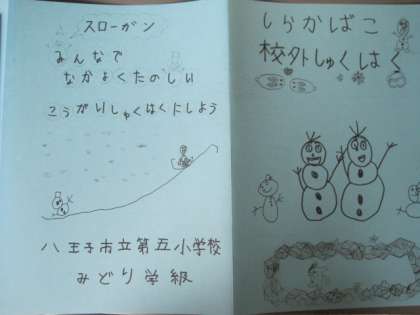 しらかばこ
校外しゅくはく
スローガン
みんなで
なかよくたのしい
こうがいしゅくはくにしよう
八王子市立第五小学校
みどり学級